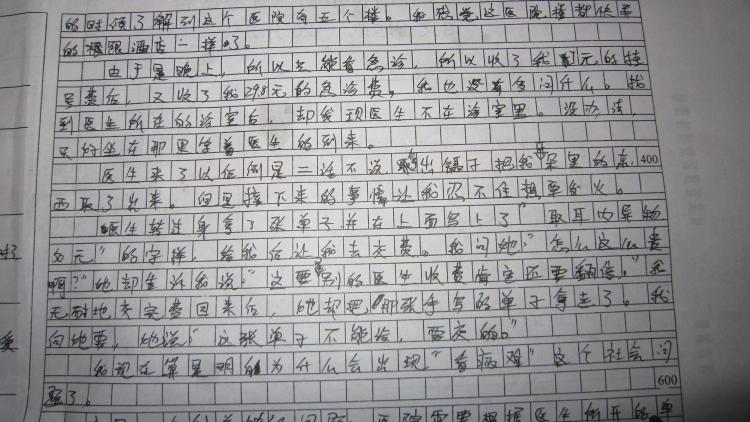 的时候了解到这个医院有五个楼。我感觉这医院楼都快弄
的跟酒店一样了。
由于是晚上，所以只能看急诊，所以收了我元的挂
号费后，又收了我298元的急诊费，我也没有多问什么。找
到医生所在的诊室后，却发现医生不在诊室里。没办法，
只好坐在那里等着医生的到来。
医生来了以后倒是二话不说，出镊子把我耳朵里的东 400
西取了出来。但是接下来的事情让我忍不住想要发火。
医生转过身拿了张单子并在上面写上了"取耳内异物
50元"的字样，给我后让我去交费。我问她："怎么这么贵
啊？"她却告诉我说："这要别的医生收费肯定还要翻倍。"我
无耐地交完费回来后，她却把那张手写的单子拿走了。我
向她要，她说："这张单子不能给，要交的。"
我现在算是明白为什么会出现"看病难"这个社会问
题了。 600
医院需要根据医生所开的单